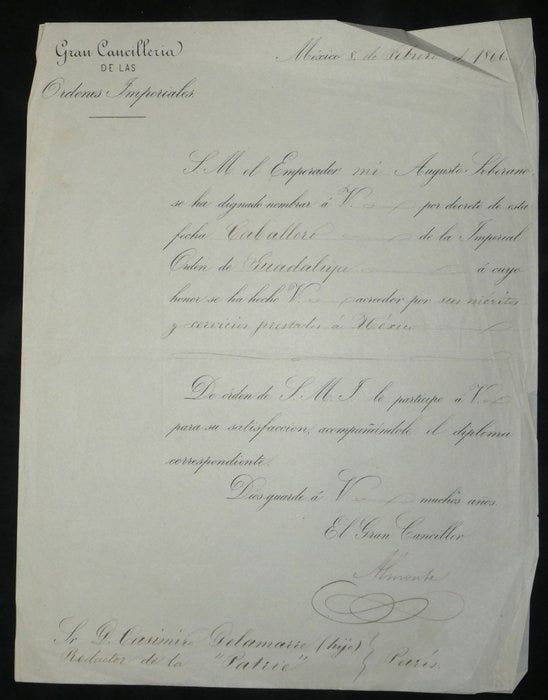 Gran Cancilleria
DE LAS
Ordenes Imperiales.
México 8 de Febrero de 1866.
S. M. el Emperador mi Augusto Soberano
se ha dignado nombrar á V. por decreto de esta
fecha Caballero de la Imperial
Orden de Guadalupe á cuyo
honor se ha hecho V. acreedor por sus méritos
y servicios prestados á México
De órden de S. M. I. lo participo á V.
para su satisfaccion, acompañándole el diploma
correspondiente.
Dios guarde á V. muchos años.
El Gran Canciller
Almonte
Sr. D. Casimiro Delamarre (hijo)
Redactor de la "Patrie" París.